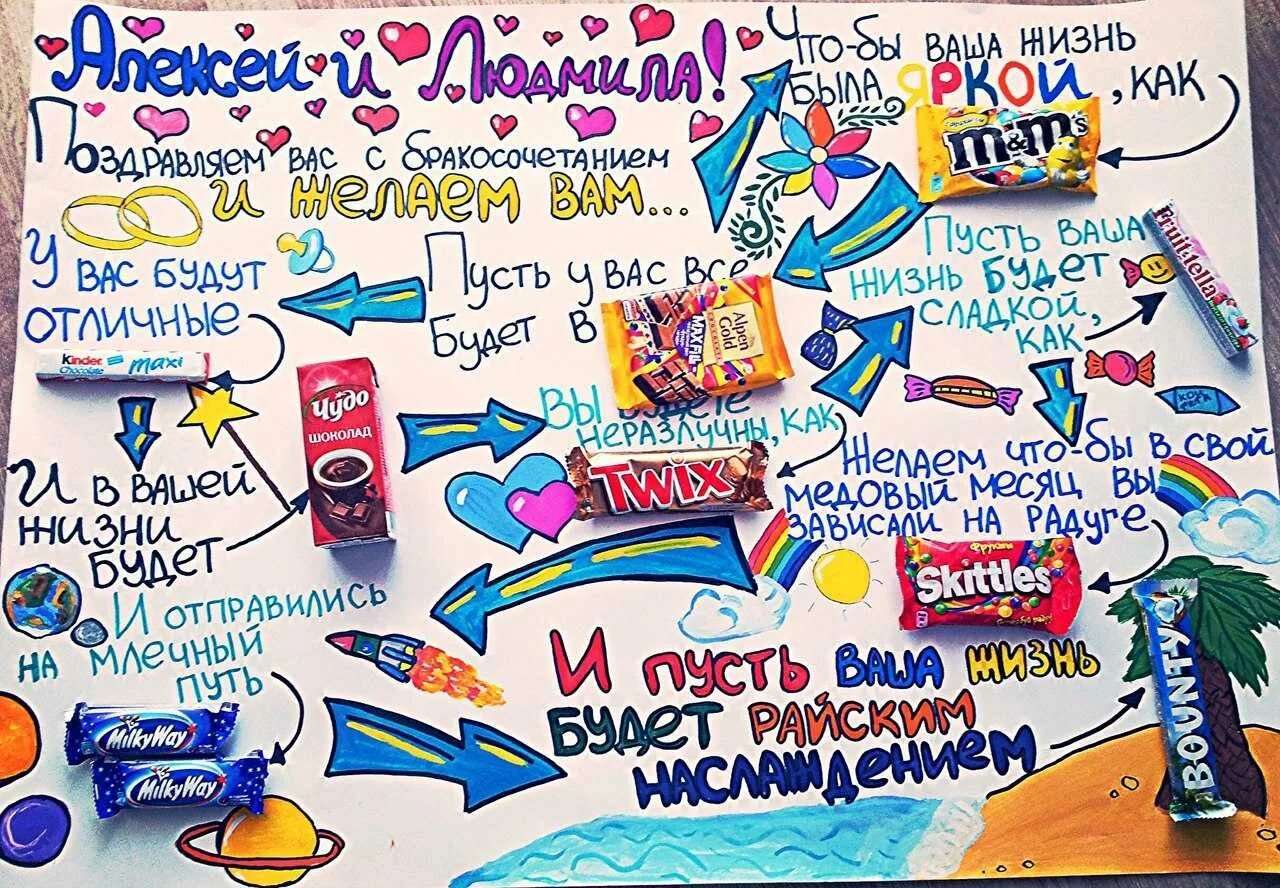 Алексей и Людмила!
Поздравляем вас с бракосочетанием
и желаем вам...
Что-бы ваша жизнь
была яркой, как
m&m's
Пусть у вас все
будет в
Alpen Gold
CHOCOLATE
MAX FUN
У вас будут
отличные
Kinder
Chocolate
maxi
И в вашей
жизни
будет
Чудо
ШОКОЛАД
Вы будете
неразлучны, как
TWIX
Пусть ваша
жизнь будет
сладкой,
как
Fruittella
Желаем что-бы в свой
медовый месяц вы
зависали на радуге
Фрукты
Skittles
И отправились
на млечный
путь
MilkyWay
MilkyWay
И пусть ваша жизнь
будет райским
наслаждением
BOUNTY